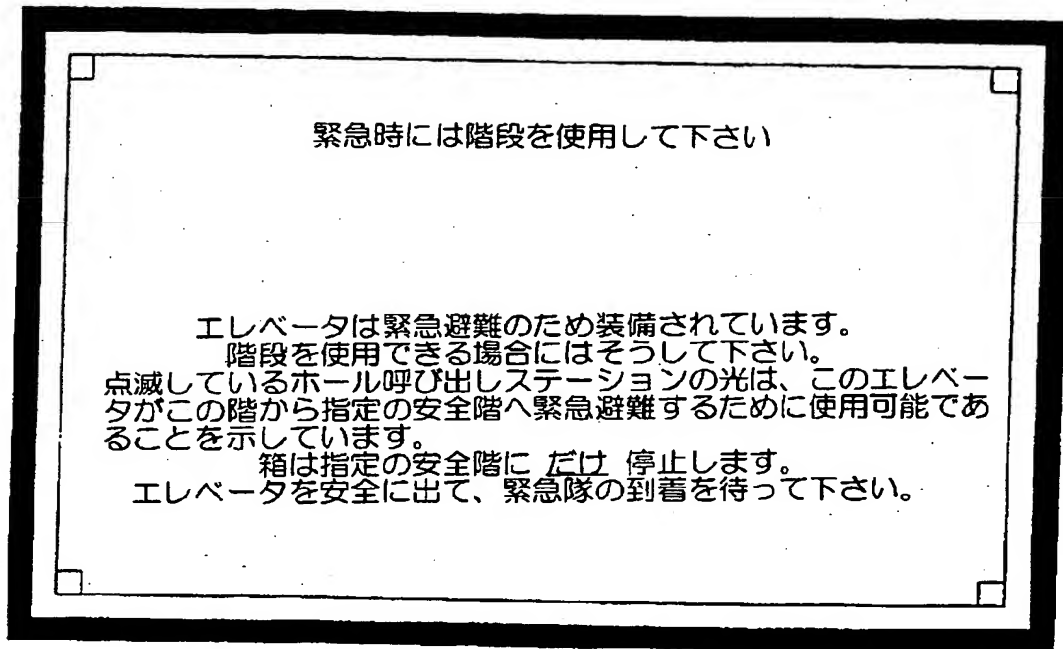 緊急時には階段を使用して下さい
エレベータは緊急避難のため装備されています。
階段を使用できる場合にはそうして下さい。
点滅しているホール呼び出しステーションの光は、このエレベー
タがこの階から指定の安全階へ緊急避難するために使用可能であ
ることを示しています。
箱は指定の安全階に だけ 停止します。
エレベータを安全に出て、緊急隊の到着を待って下さい。